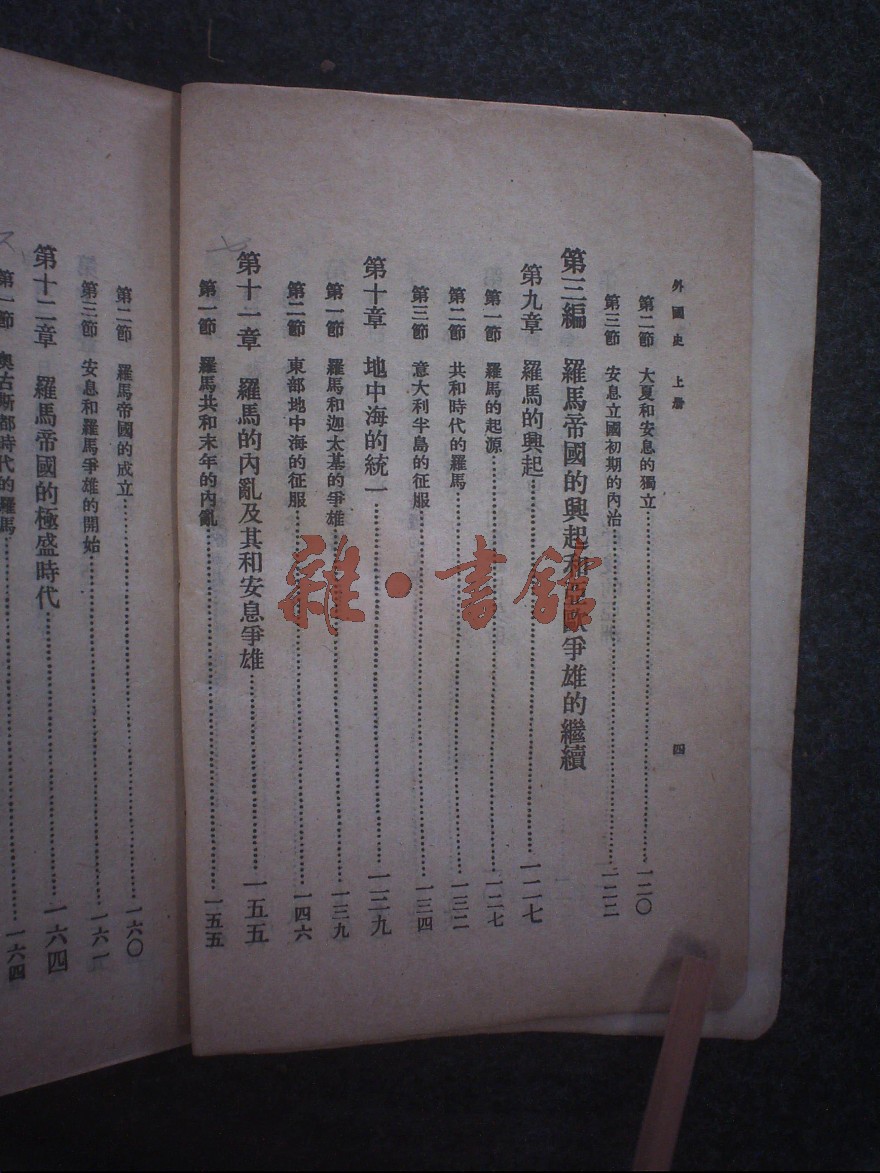 外國史 上册
四
第二節 大夏和安息的獨立……一二〇
第三節 安息立國初期的內治……一二二
第三編 羅馬帝國的興起和亞歐爭雄的繼續
第九章 羅馬的興起……一二七
第一節 羅馬的起源……一二七
第二節 共和時代的羅馬……一三二
第三節 意大利半島的征服……一三四
第十章 地中海的統一……一三九
第一節 羅馬和迦太基的爭雄……一三九
第二節 東部地中海的征服……一四六
第十一章 羅馬的內亂及其和安息爭雄……一五五
第一節 羅馬共和末年的內亂……一五五
第二節 羅馬帝國的成立……一六〇
第三節 安息和羅馬爭雄的開始……一六一
第十二章 羅馬帝國的極盛時代……一六四
第一節 奧古斯都時代的羅馬……一六四
雜·書館